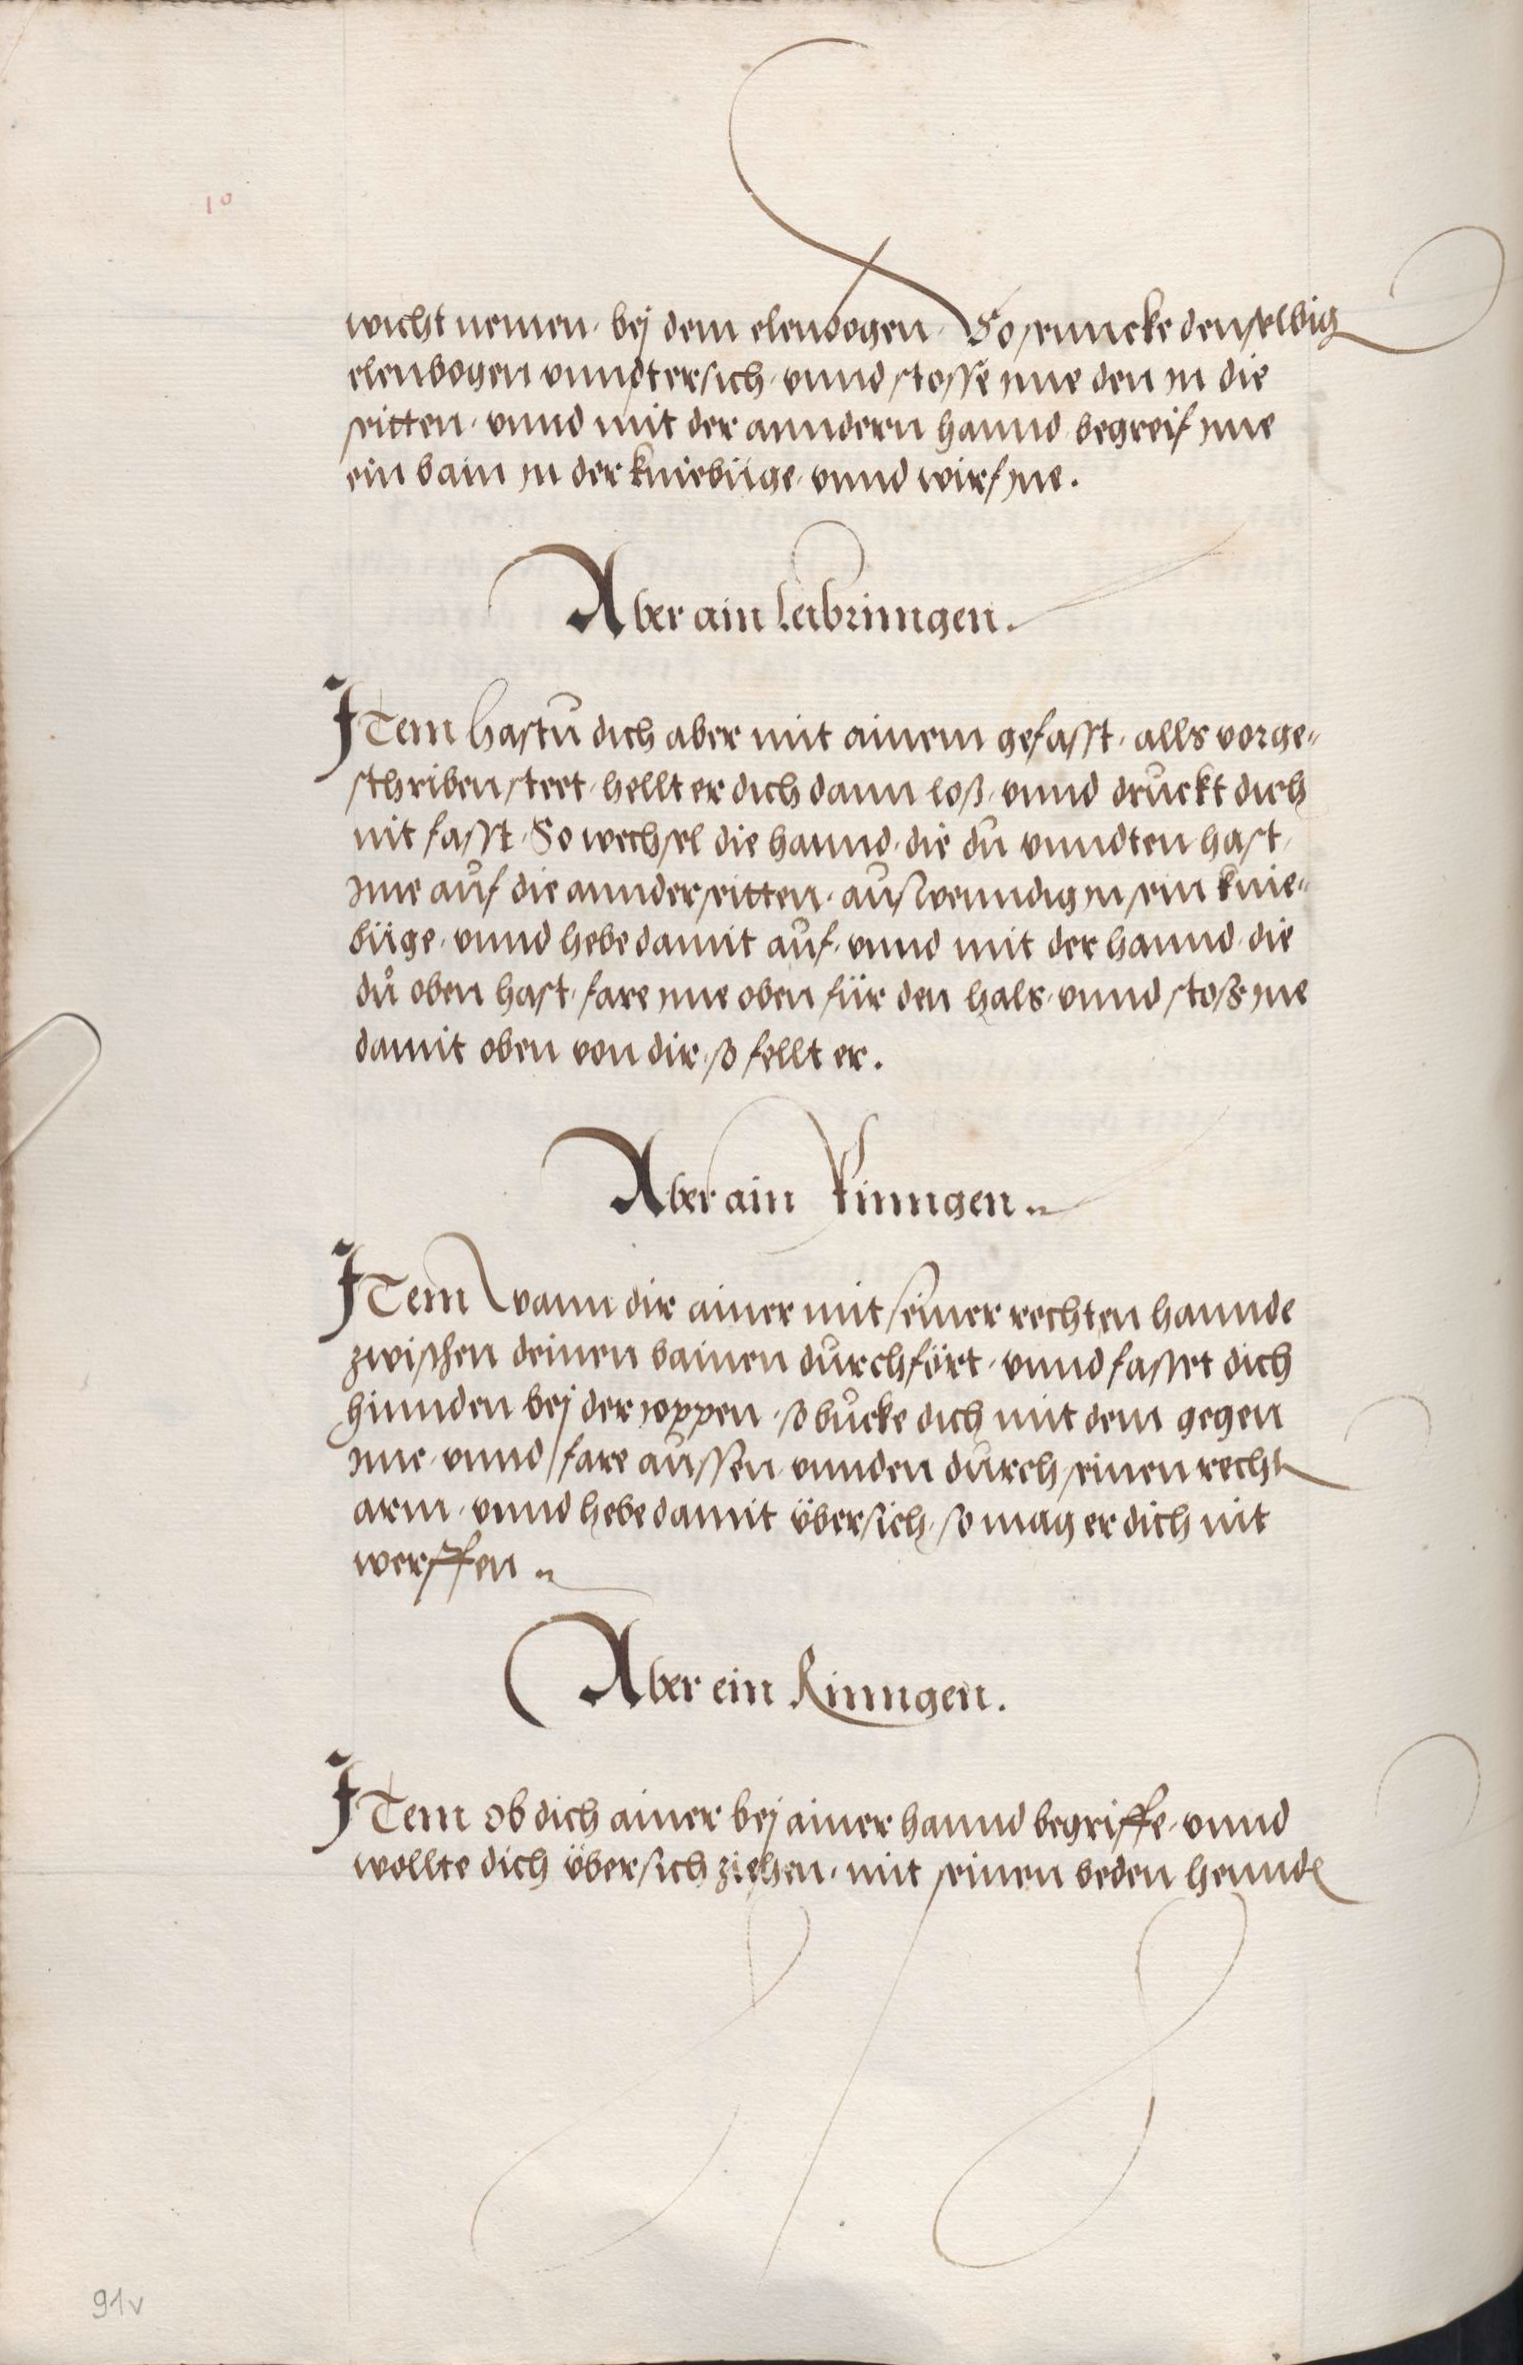 10
wicht nemen, bej dem elenbogen, So senncke denselbig
elenbogen vnndtersich, vnnd stosse jme den jn die
seitten, vnnd mit der anndern hannd, begreif jme
ein bain jn der kniebüge, vnnd wirf jne.
Aber ain leibrinngen.
Item hastu dich aber mit ainem gefasst, alls vorge„
schriben steet, hellt er dich dann loß, vnnd druckt dich
nit fasst, So wechsel die hannd, die du vnndten hast,
jme auf die annder seitten, auswenndig jn sein knie„
büge, vnnd hebe damit auf, vnnd mit der hannd, die
dů oben hast, fare jme oben für den hals, vnnd stoß jne
damit oben von dir, so fellt er.
Aber ain Rinngen„
Item Wann dir ainer mit seiner rechten hannde
zwischen deinen bainen durchfört, vnnd fasset dich
hinnden bej der joppen, so bucke dich mit dem gegen
jme, vnnd fare aussen, vnnden durch, seinen recht
arm, vnnd hebe damit übersich, so mag er dich nit
werffen„
Aber ein Rinngen.
Item ob dich ainer bej ainer hannd begriffe, vnnd
wollte dich übersich ziehen, mit seinen beden hennd
91v